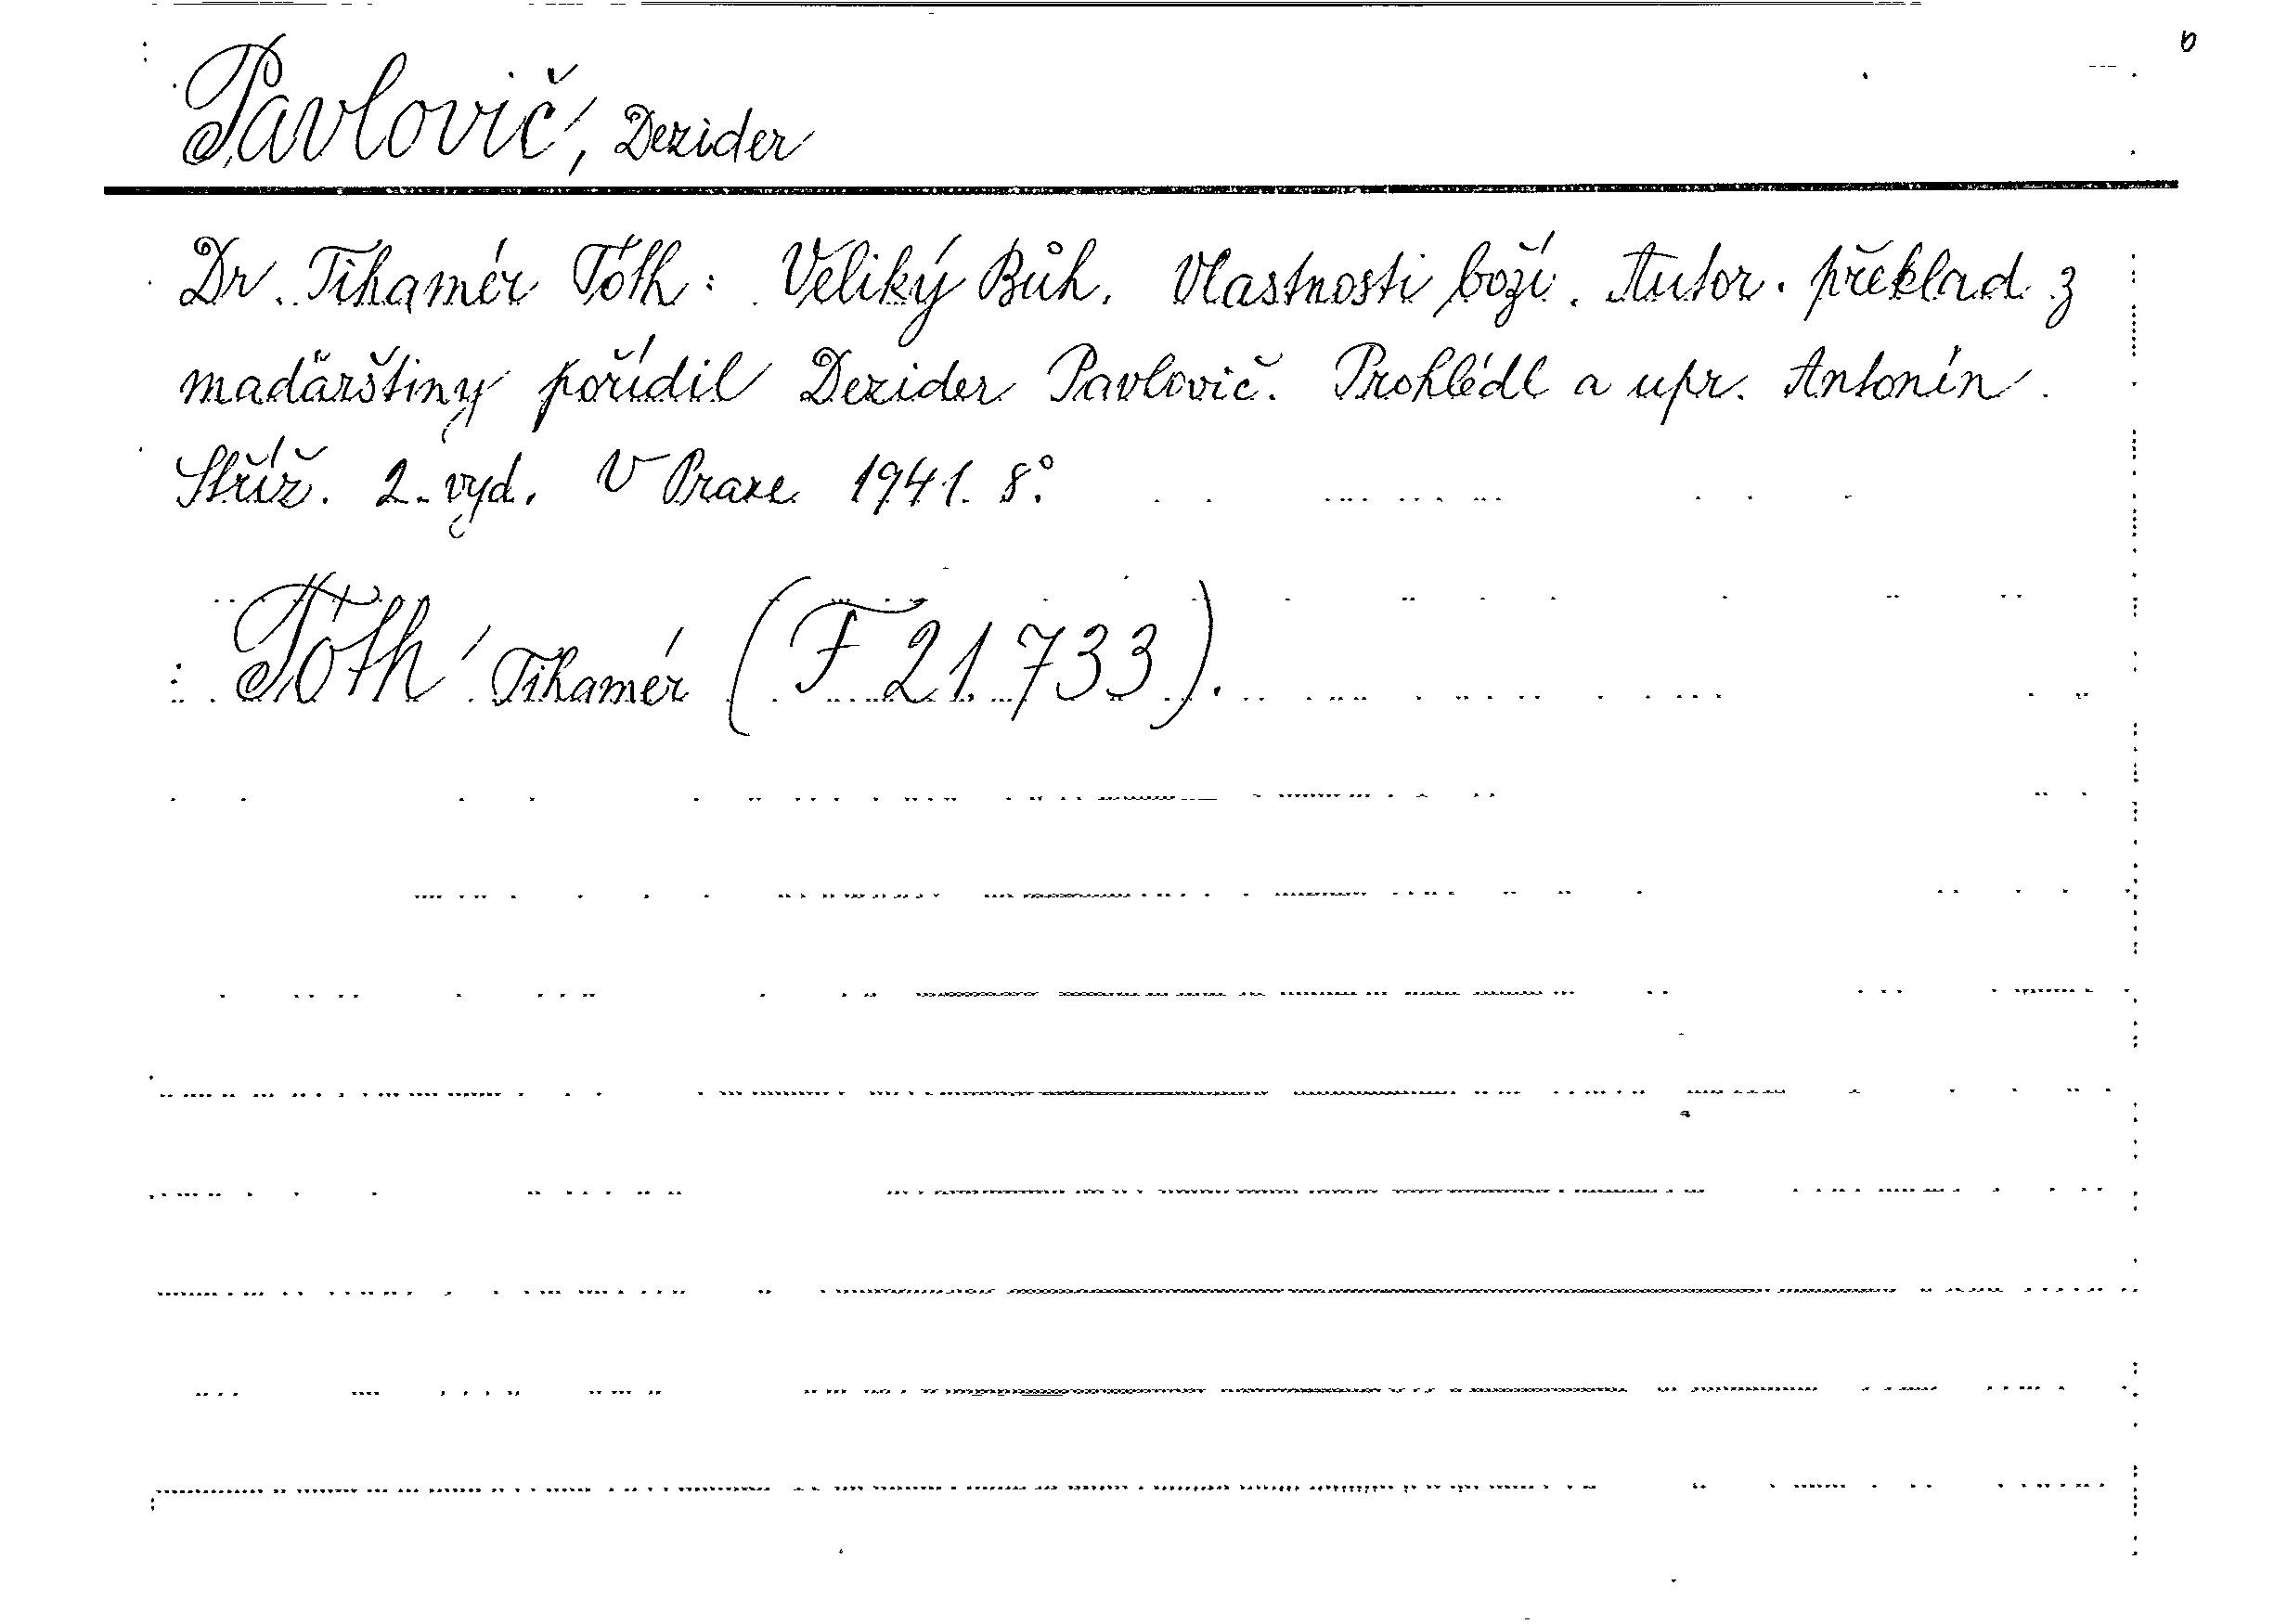 Pavlovič, Dezider
Dr. Tihamér Tóth: Veliký Bůh. Vlastnosti boží. Autor. překlad z
maďarštiny pořídil Dezider Pavlovič. Prohlédl a upr. Antonín
Stříž. 2. vyd. V Praze 1941. 8°.
Tóth Tihamér (F 21.733).